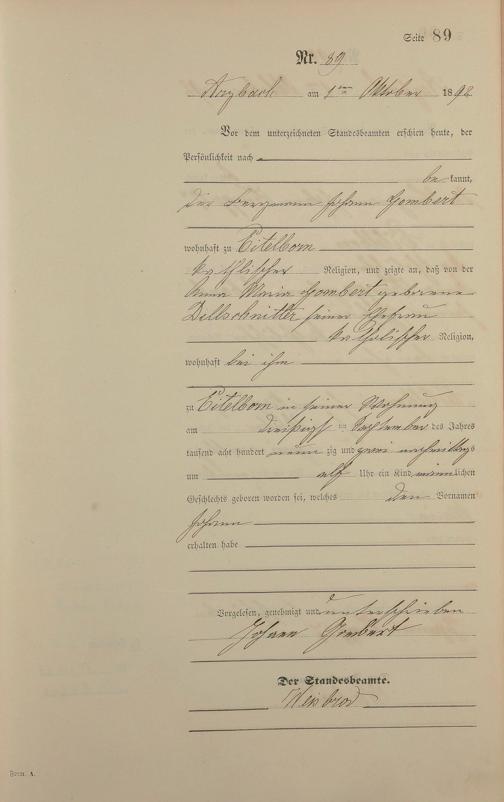 Seite 89
Nr. 89
Arzbach am 1ten Oktober 1892
Vor dem unterzeichneten Standesbeamten erschien heute, der
Persönlichkeit nach
bekannt,
der Bergmann Johann Gombert
wohnhaft zu Eitelborn
katholischer Religion, und zeigte an, daß von der
Anna Maria Gombert geborene
Dellschnitter seiner Ehefrau
katholischer Religion,
wohnhaft bei ihm
zu Eitelborn in seiner Wohnung
am dreißigsten September des Jahres
tausend acht hundert neunzig und zwei nachmittags
um elf Uhr ein Kind männlichen
Geschlechts geboren worden sei, welches den Vornamen
Johann
erhalten habe
Vorgelesen, genehmigt und unterschrieben
Johann Gombert
Der Standesbeamte.
Weisbrod
Form. A.